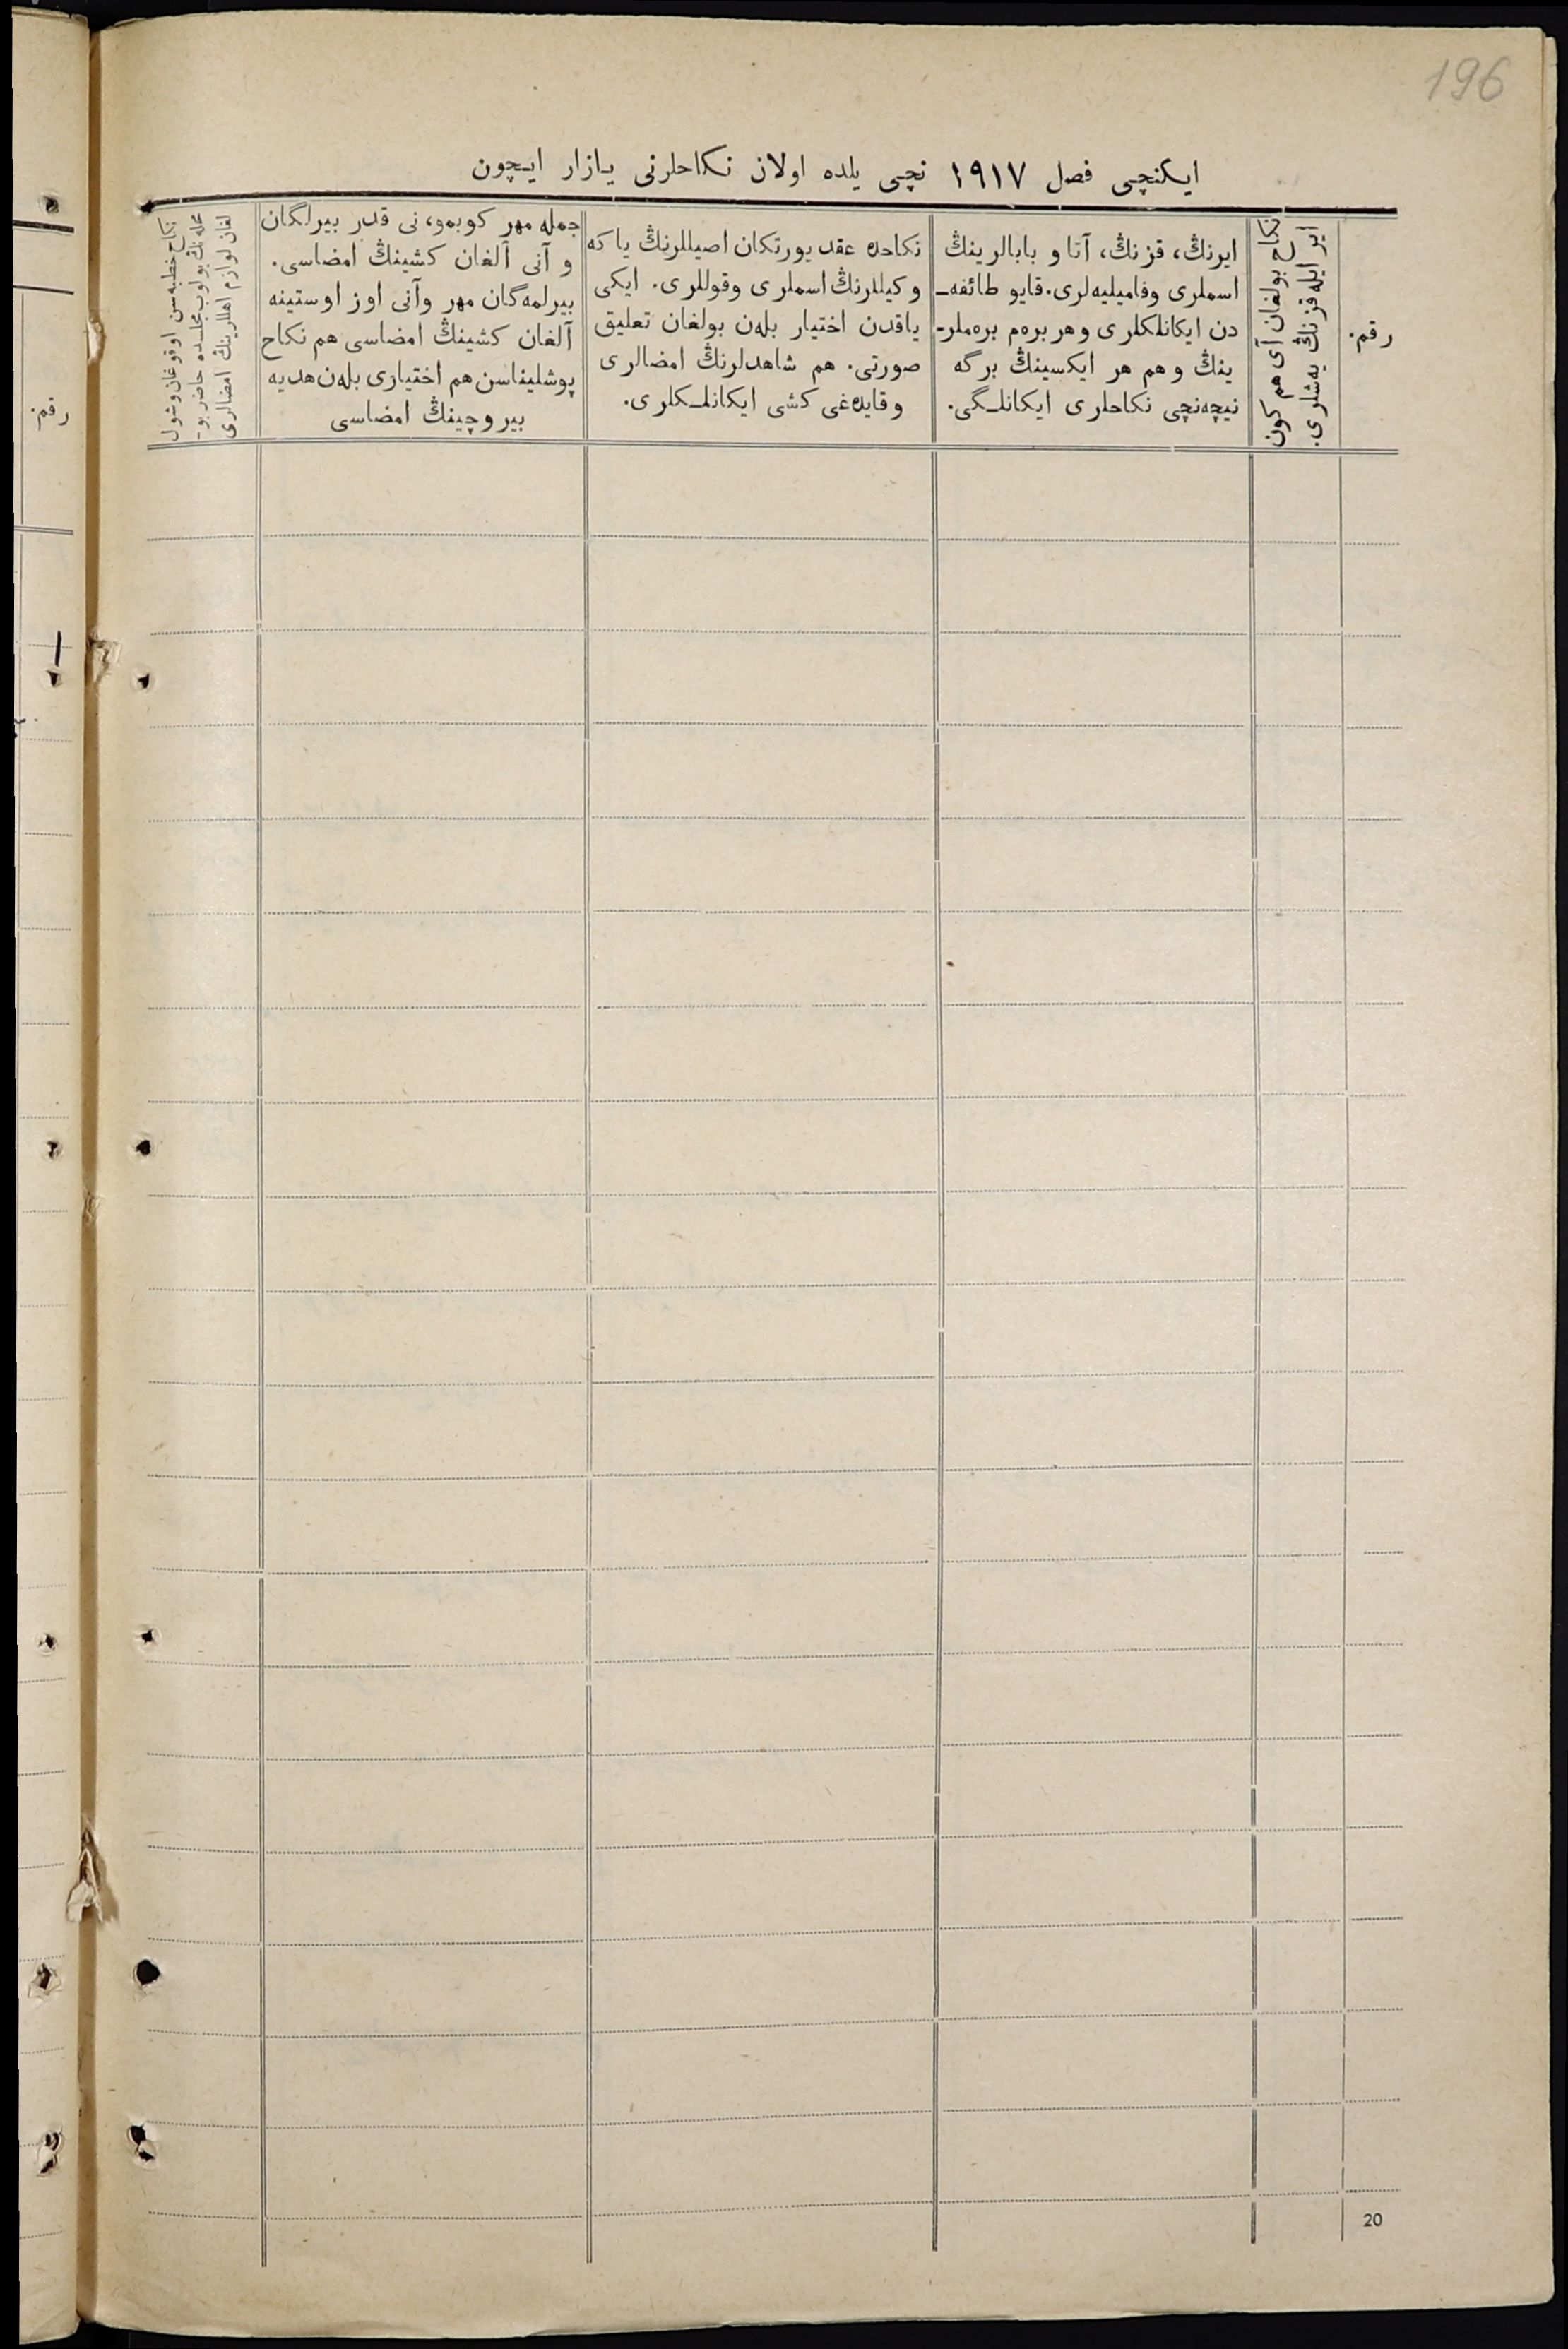 196
ایکنچی فصل ۱۹۱۷ نچی یلده اولان نکاحلرنی یازار ایچون
رقم.
نکاح بولغان آی هم کون
ایر ایله قزنڭ یەشلری.
ایرنڭ، قزنڭ، آتا و بابالرینڭ
اسملری وفامیلیەلری. قایو طائفه‌ـ
دن ایکانلکلری وهر برەم برەملرـ
ینڭ وهم هر ایکسینڭ برگه
نیچەنچی نکاحلری ایکانلـگی.
نکاحده عقد یورتکان اصیللرنڭ یا که
وکیللرنڭ اسملری وقوللری. ایکی
یاقدن اختیار بلەن بولغان تعلیق
صورتی. هم شاهدلرنڭ امضالری
وقایدەغی کشی ایکانلـکلری.
جمله مهر کوبمو، نی قدر بیرلگان
و آنی آلغان کشینڭ امضاسی.
بیرلمەگان مهر وآنی اوز اوستینه
آلغان کشینڭ امضاسی هم نکاح
پوشلیناسن هم اختیاری بلەن هدیه
بیروچینڭ امضاسی
نکاح خطبەسن اوقوغان وشول
محله‌نڭ بولوب مجلسده حاضر بوـ
لغان لوازم اهللرینڭ امضالری
رقم.
20